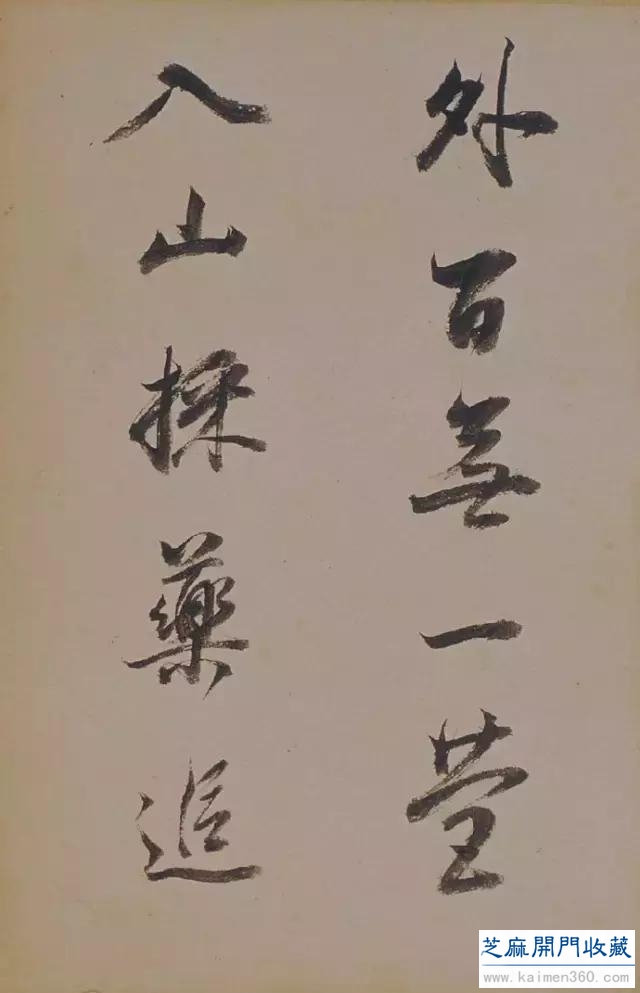 外百無一營
入山採藥追
芝麻開門收藏
www.kaimen360.com